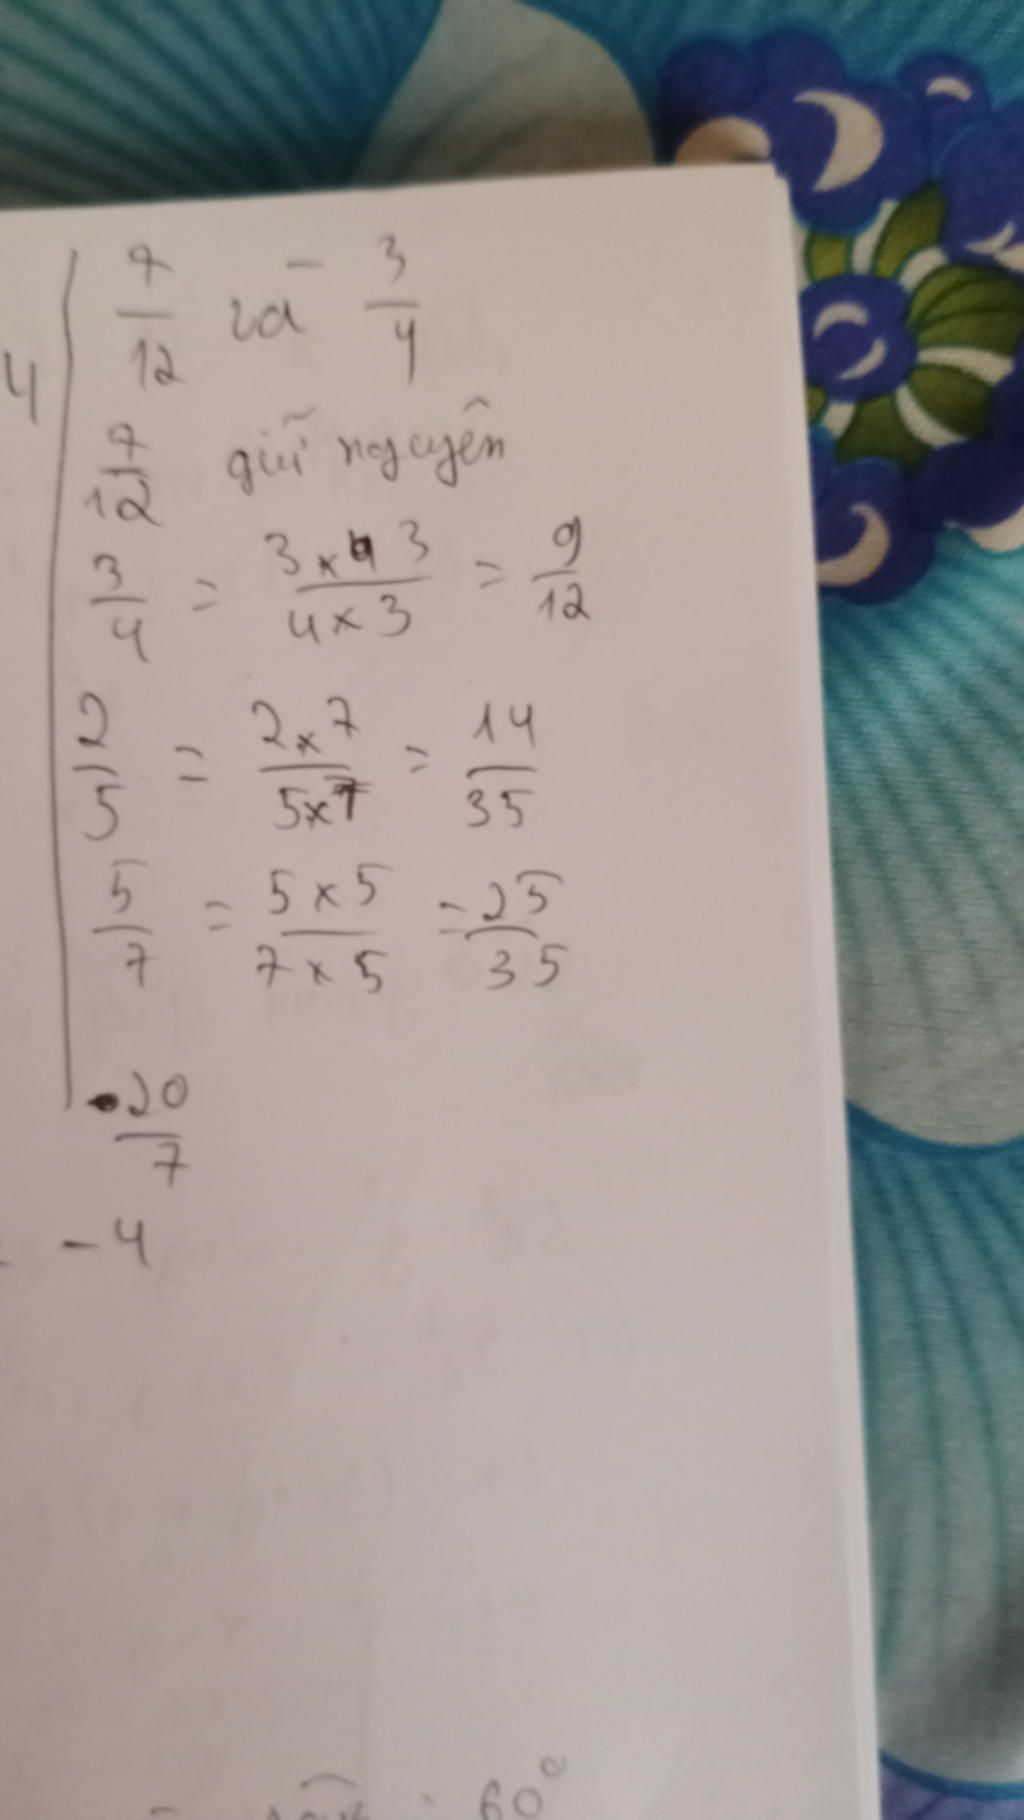 7/12 và 3/4
4
7/12 giữ nguyên
3/4 = 3 × 3 / 4 × 3 = 9/12
2/5 = 2 × 7 / 5 × 7 = 14/35
5/7 = 5 × 5 / 7 × 5 = 25/35
20/7
- 4
60°